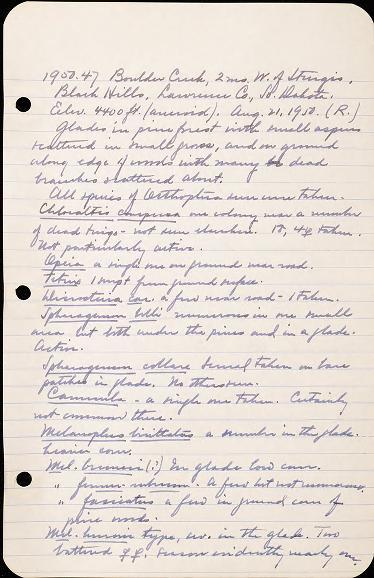 1950.47 Boulder Creek, 2 mi. W. of Sturgis.
Black Hills, Lawrence Co., So. Dakota.
Elev. 4400 ft. (aneroid). Aug. 21, 1950. (R.)
Glades in pine forest with small aspens
scattered in small groves, and on ground
along edge of woods with many dead
branches scattered about.
All species of Orthoptera seen were taken.
Chloealtis conspersa one colony near a number
of dead twigs - not seen elsewhere. 1♂, 4♀ taken.
Not particularly active.
Opeia a single one on ground near road.
Tettix 1 swept from ground surface.
Dissosteira car. a few near road - 1 taken.
Spharagemon bolli numerous in one small
area but both under the pines and in a glade.
Active.
Spharagemon collare Several taken on bare
patches in glade. No others seen.
Camnula - a single one taken. Certainly
not common there.
Melanoplus bivittatus a number in the glade.
heavier cover.
Mel. bruneri (?) In glade low cover.
" femur-rubrum. A few but not numerous.
" fasciatus a few in ground cover of
pine woods.
Mel. type, in the glade. Two
battered ♀♀. Season evidently nearly over.